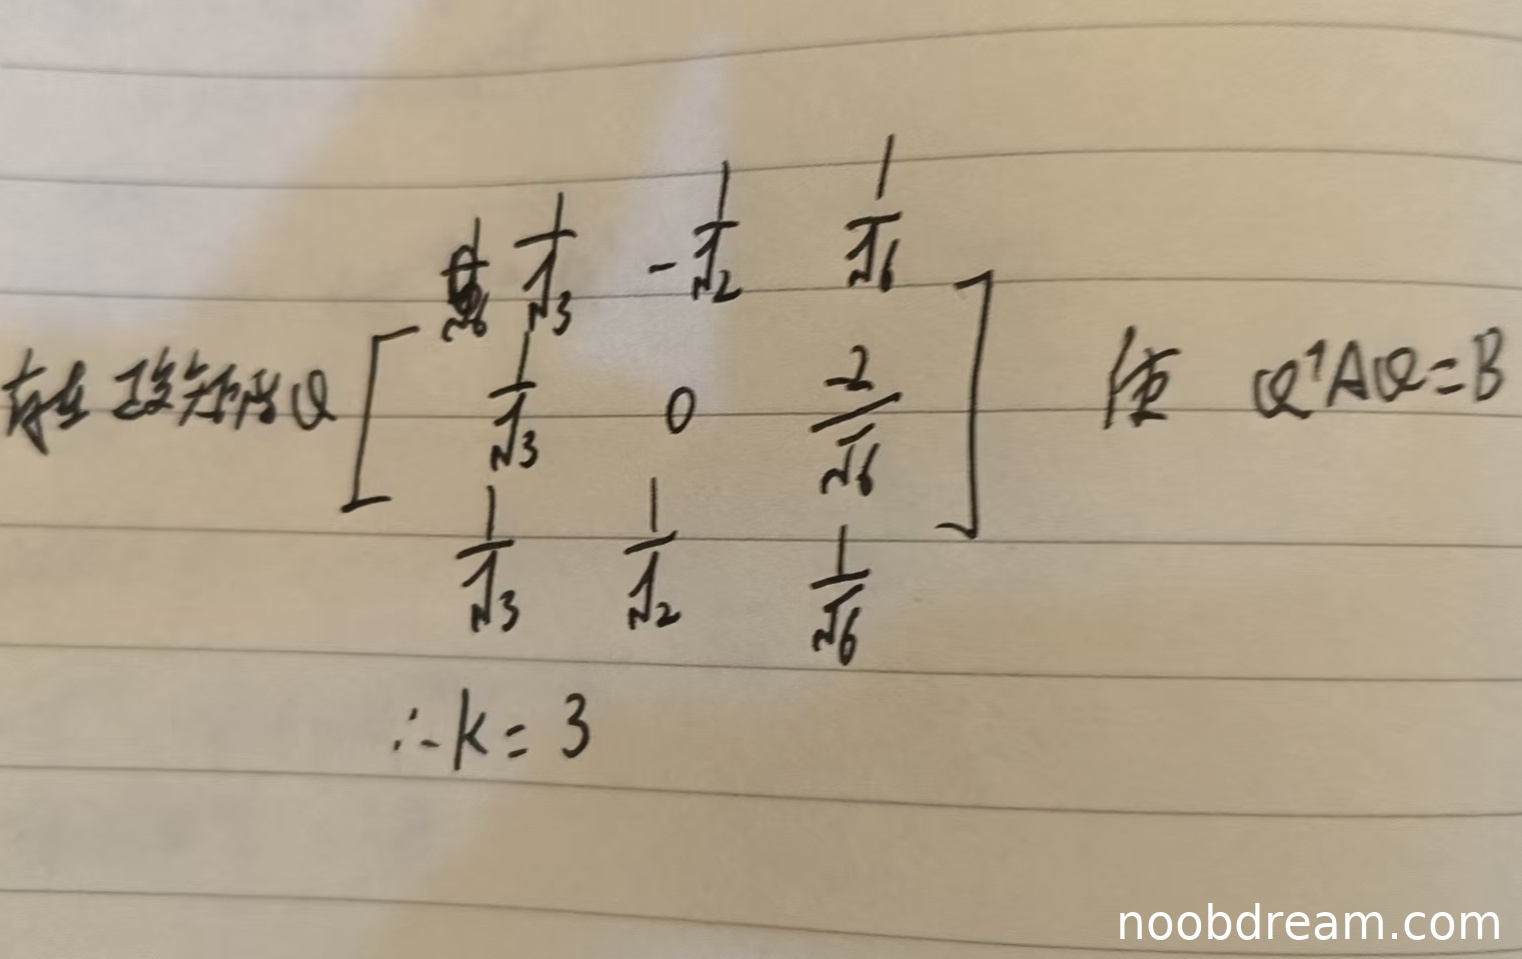 存在正交矩阵Q [ 1/√3 -1/√2 1/√6
1/√3 0 -2/√6
1/√3 1/√2 1/√6 ] 使 Q⁻¹AQ=B
∴k=3
noobdream.com